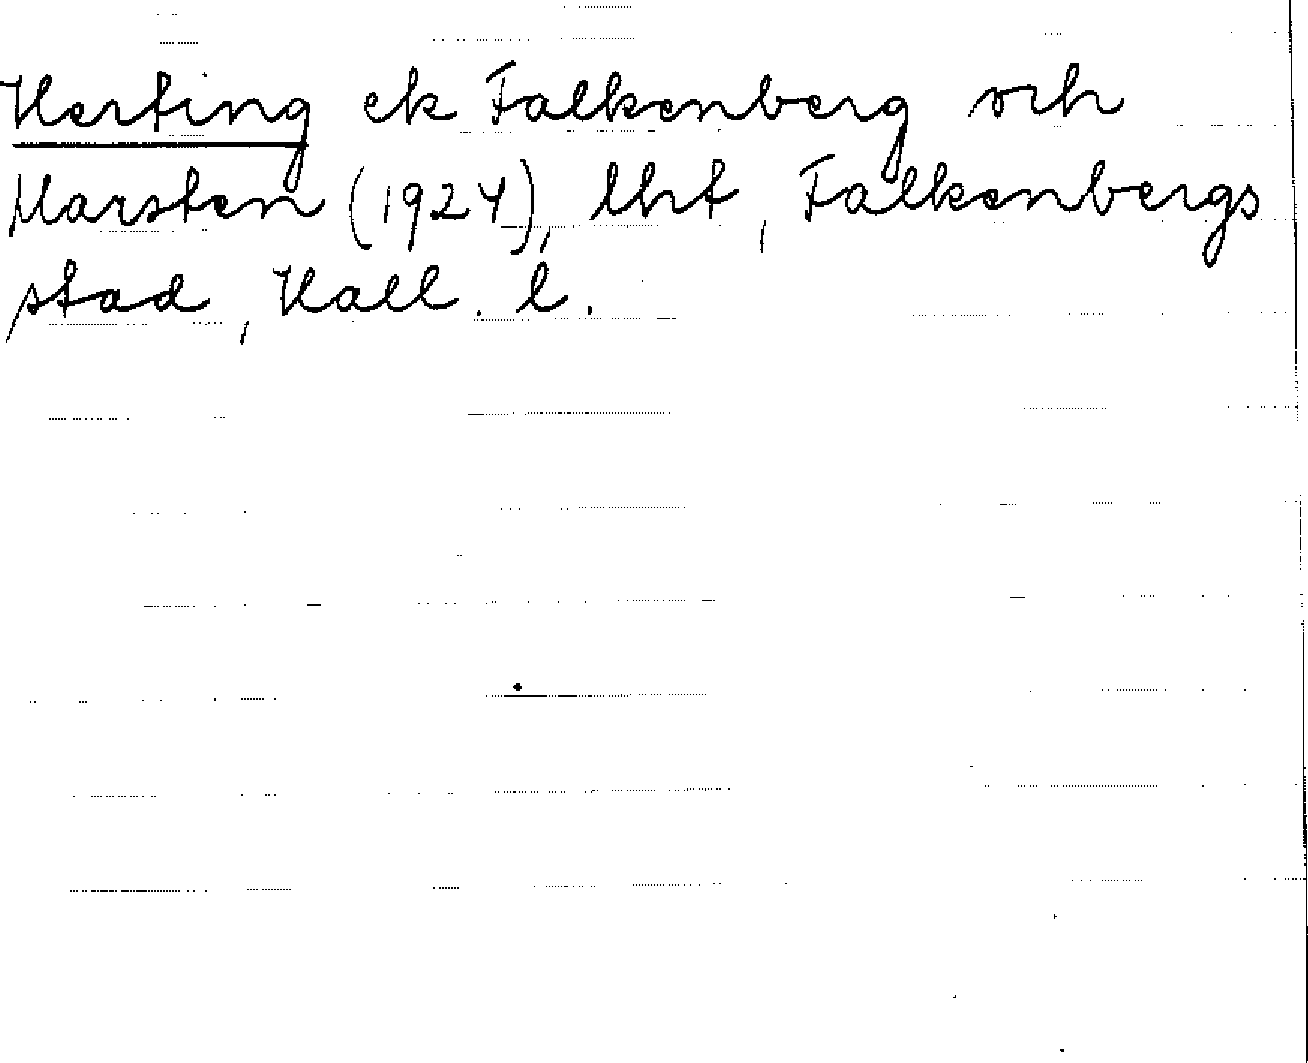 Herting ek Falkenberg och
Marsten (1924), lht, Falkenbergs
stad, Hall. l.